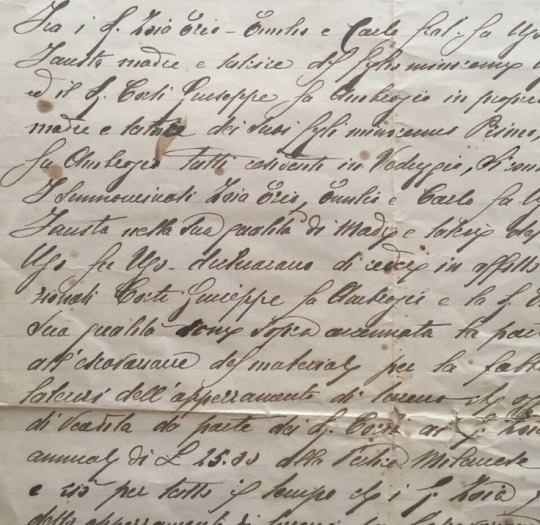 Fra i S. Zoia Ezio - Emilio e Carlo frat. fu Ugo
Fausta madre e tutrice del figlio minorenne
ed il S. Corti Giuseppe fu Ambrogio in proprio
madre e tutrice dei suoi figli minorenni Primo,
fu Ambrogio tutti residenti in Vedeggio, Si
I summenzionati Zoia Ezio, Emilio e Carlo fu U
Fausta nella sua qualità di Madre e tutrice del
Ugo fu Ugo - dichiarano di cedere in affitto
zionati Corti Giuseppe fu Ambrogio e la S.
sua qualità come sopra accennata la par
all'escavazione del materiale per la fabb
laterizi dell'appezzamento di terreno che og
di vendita da parte dei S. Corti ai S. Zoia
annuale di £ 25.30 alla Pertica Milanese
e ciò per tutto il tempo che i S. Zoia
dello appezzamento di terreno